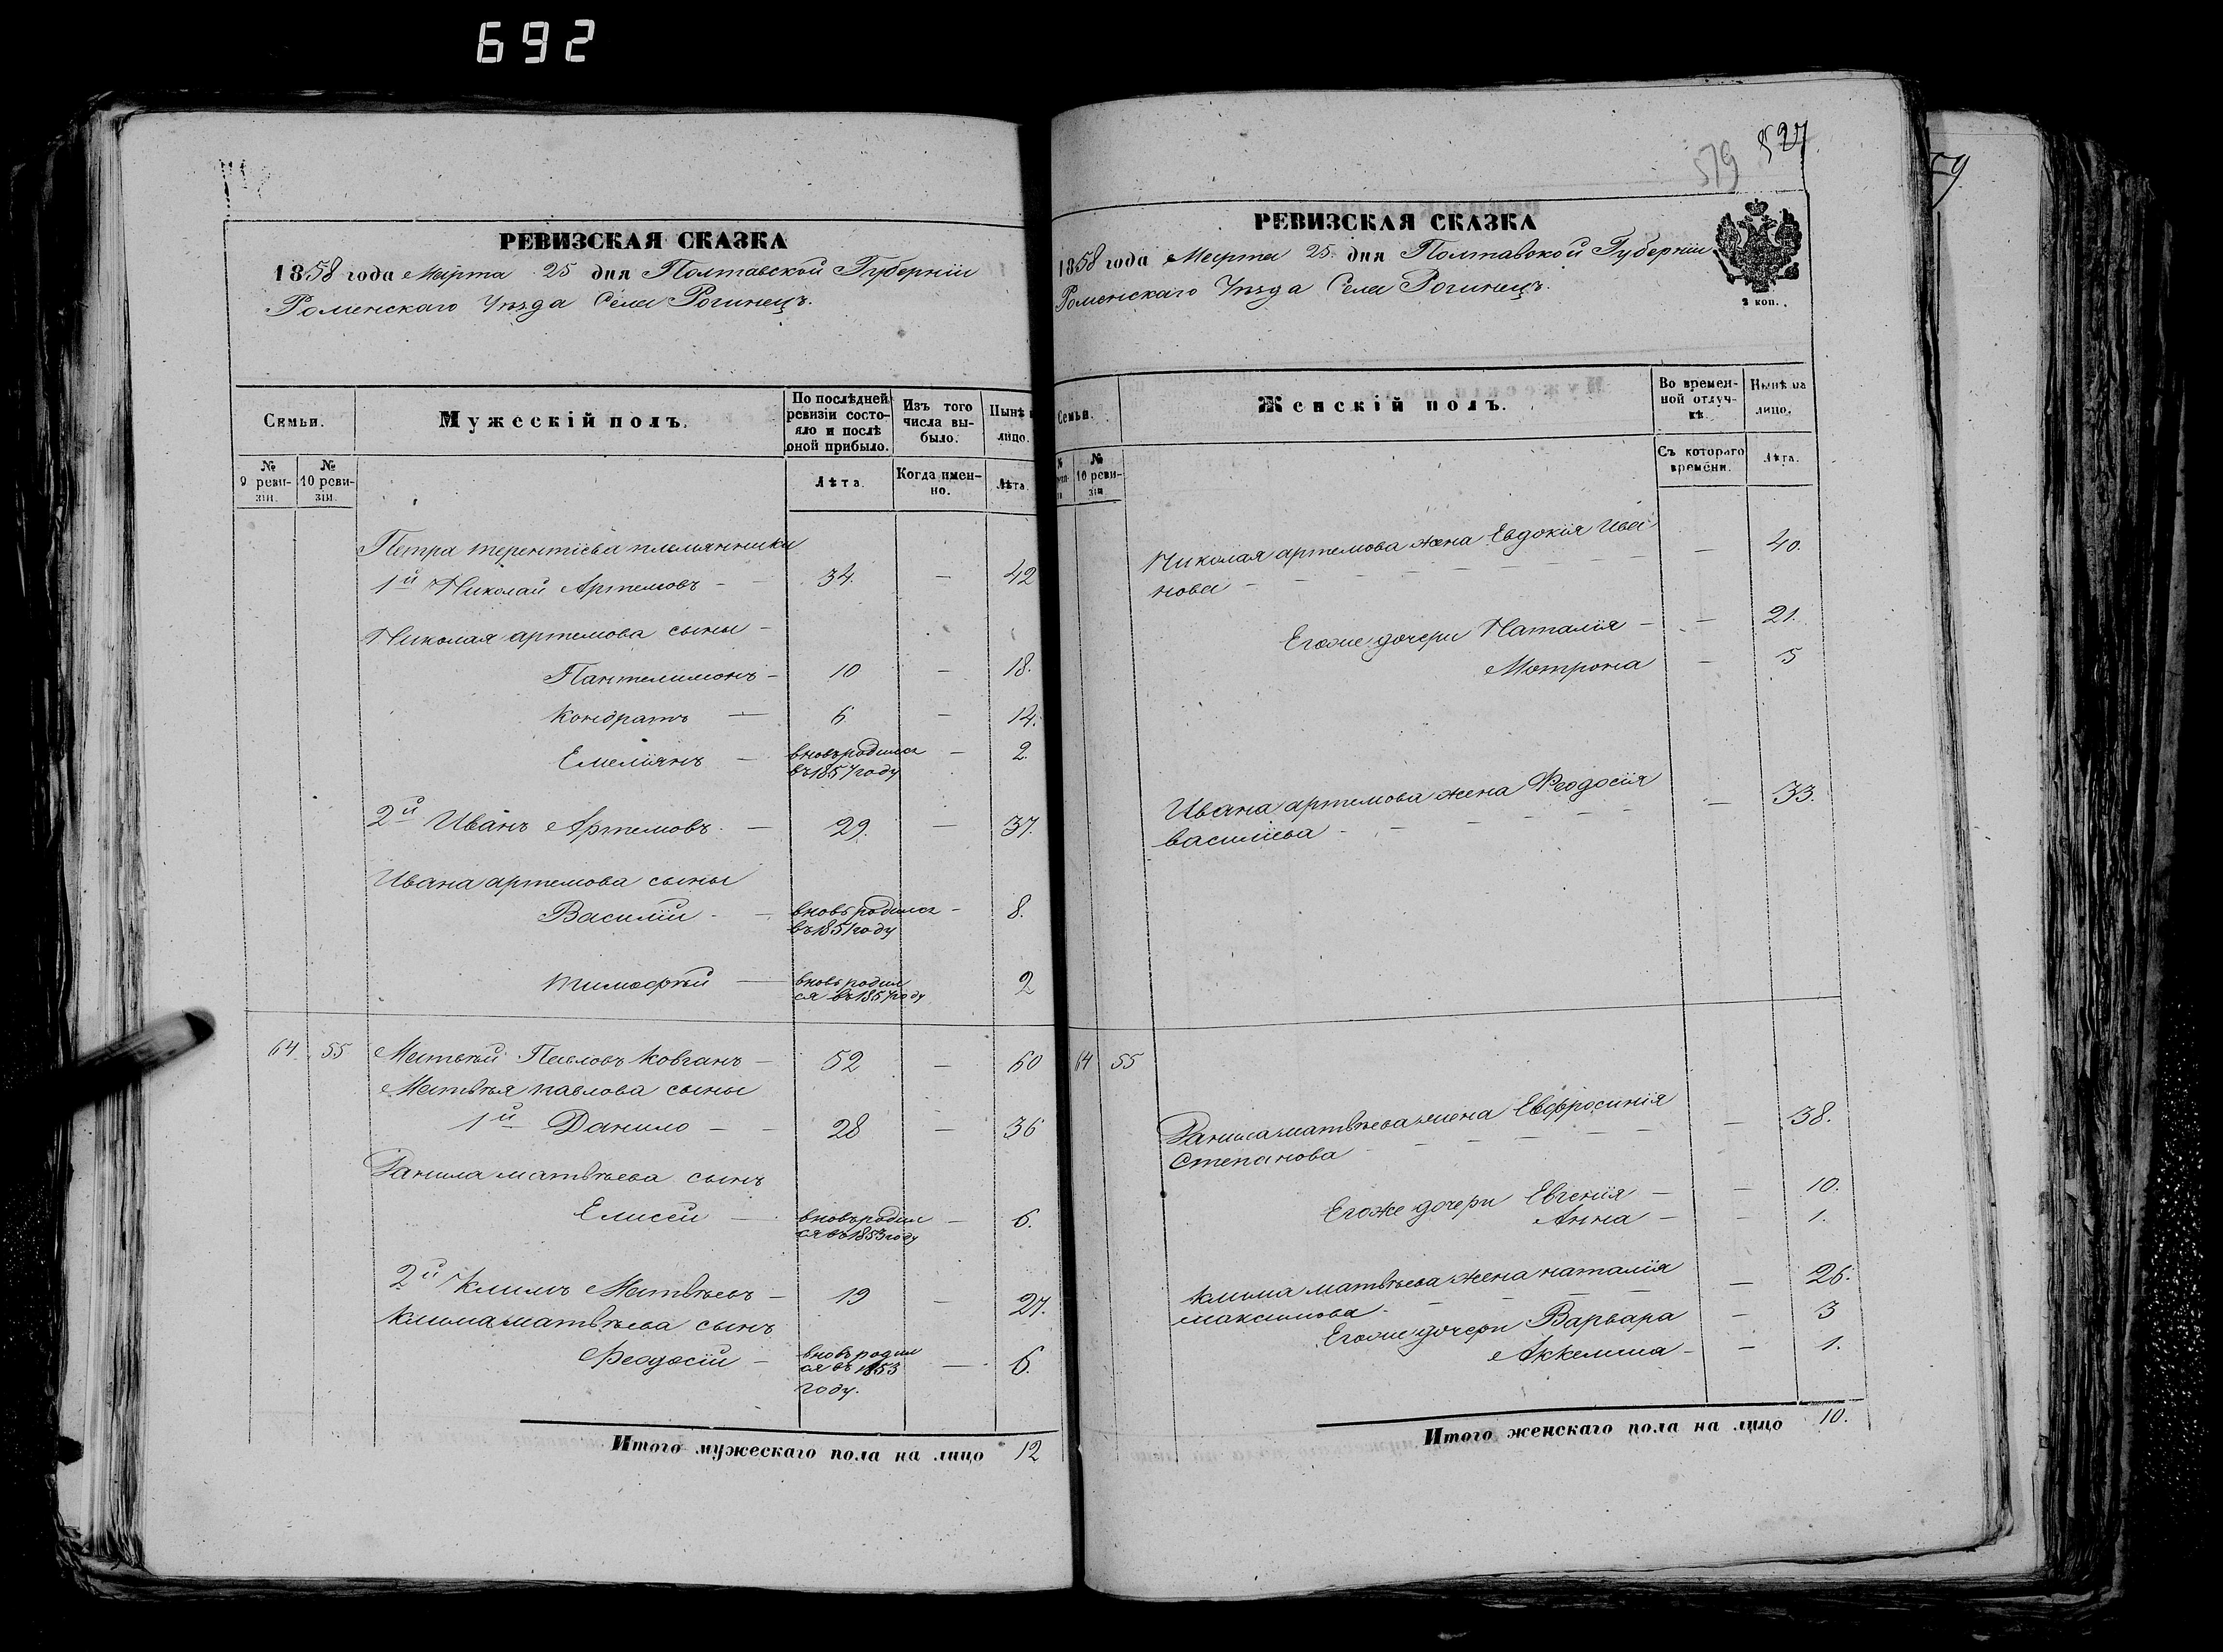 692
РЕВИЗСКАЯ СКАЗКА
1858 года Марта 25 дня Полтавской Губернiи
Роменскаго Уѣзда Села Рогинецъ.
Семьи.
Мужескiй полъ.
По послѣдней ревизiи состояло и послѣ оной прибыло.
Изъ того числа выбыло.
Нынѣ
лицо.
№ 9 ревизiи.
№ 10 ревизiи.
Лѣта.
Когда именно.
Лѣта.
Петра терентiева племянники
1й Николай Артемовъ - 34. - 42
Николая артемова сыны -
Пантелимонъ - 10 - 18.
Кондратъ - 6 - 14.
Емелiянъ - вновь родился - 2.
въ 1857 году
2й Иванъ Артемовъ. - 29. - 37.
Ивана артемова сыны
Василiй - вновь родился - 8.
въ 1851 году
тимофѣй - вновь родил 2
ся въ 1857 году
64 55 Матвѣй Павловъ Ковганъ - 52 - 60
Матвѣя павлова сыны
1й Данило - 28 - 36
Данила матвѣева сынъ
Елисей - вновь родил - 6.
ся въ 1853 году
2й Климъ Матвѣевъ - 19 - 27.
Клима матвѣева сынъ
Феодосiй - вновь родил - 6.
ся въ 1853
году.
Итого мужескаго пола на лицо 12
579 527
РЕВИЗСКАЯ СКАЗКА
1858 года Марта 25. дня Полтавской Губернiи
Роменскаго Уѣзда Села Рогинецъ.
2 коп.
Семьи.
Женскiй полъ.
Во временной отлучкѣ.
Нынѣ на лицо.
№ 10 ревизiи
Съ котораго времени.
Лѣта.
Николая артемова жена Евдокiя Ива - 40.
нова -
Егоже дочери Наталiя - - 21.
Мотрона - 5
Ивана артемова жена Феодосiя - 33.
василiева -
64 55
Данила матвѣева жена Евфросинiя - 38.
Степанова -
Егоже дочери Евгенiя - - 10.
Анна - - 1.
Клима матвѣева жена наталiя - 26.
максимова -
Егоже дочери Варвара - 3
Аккелина - - 1.
Итого женскаго пола на лицо 10.